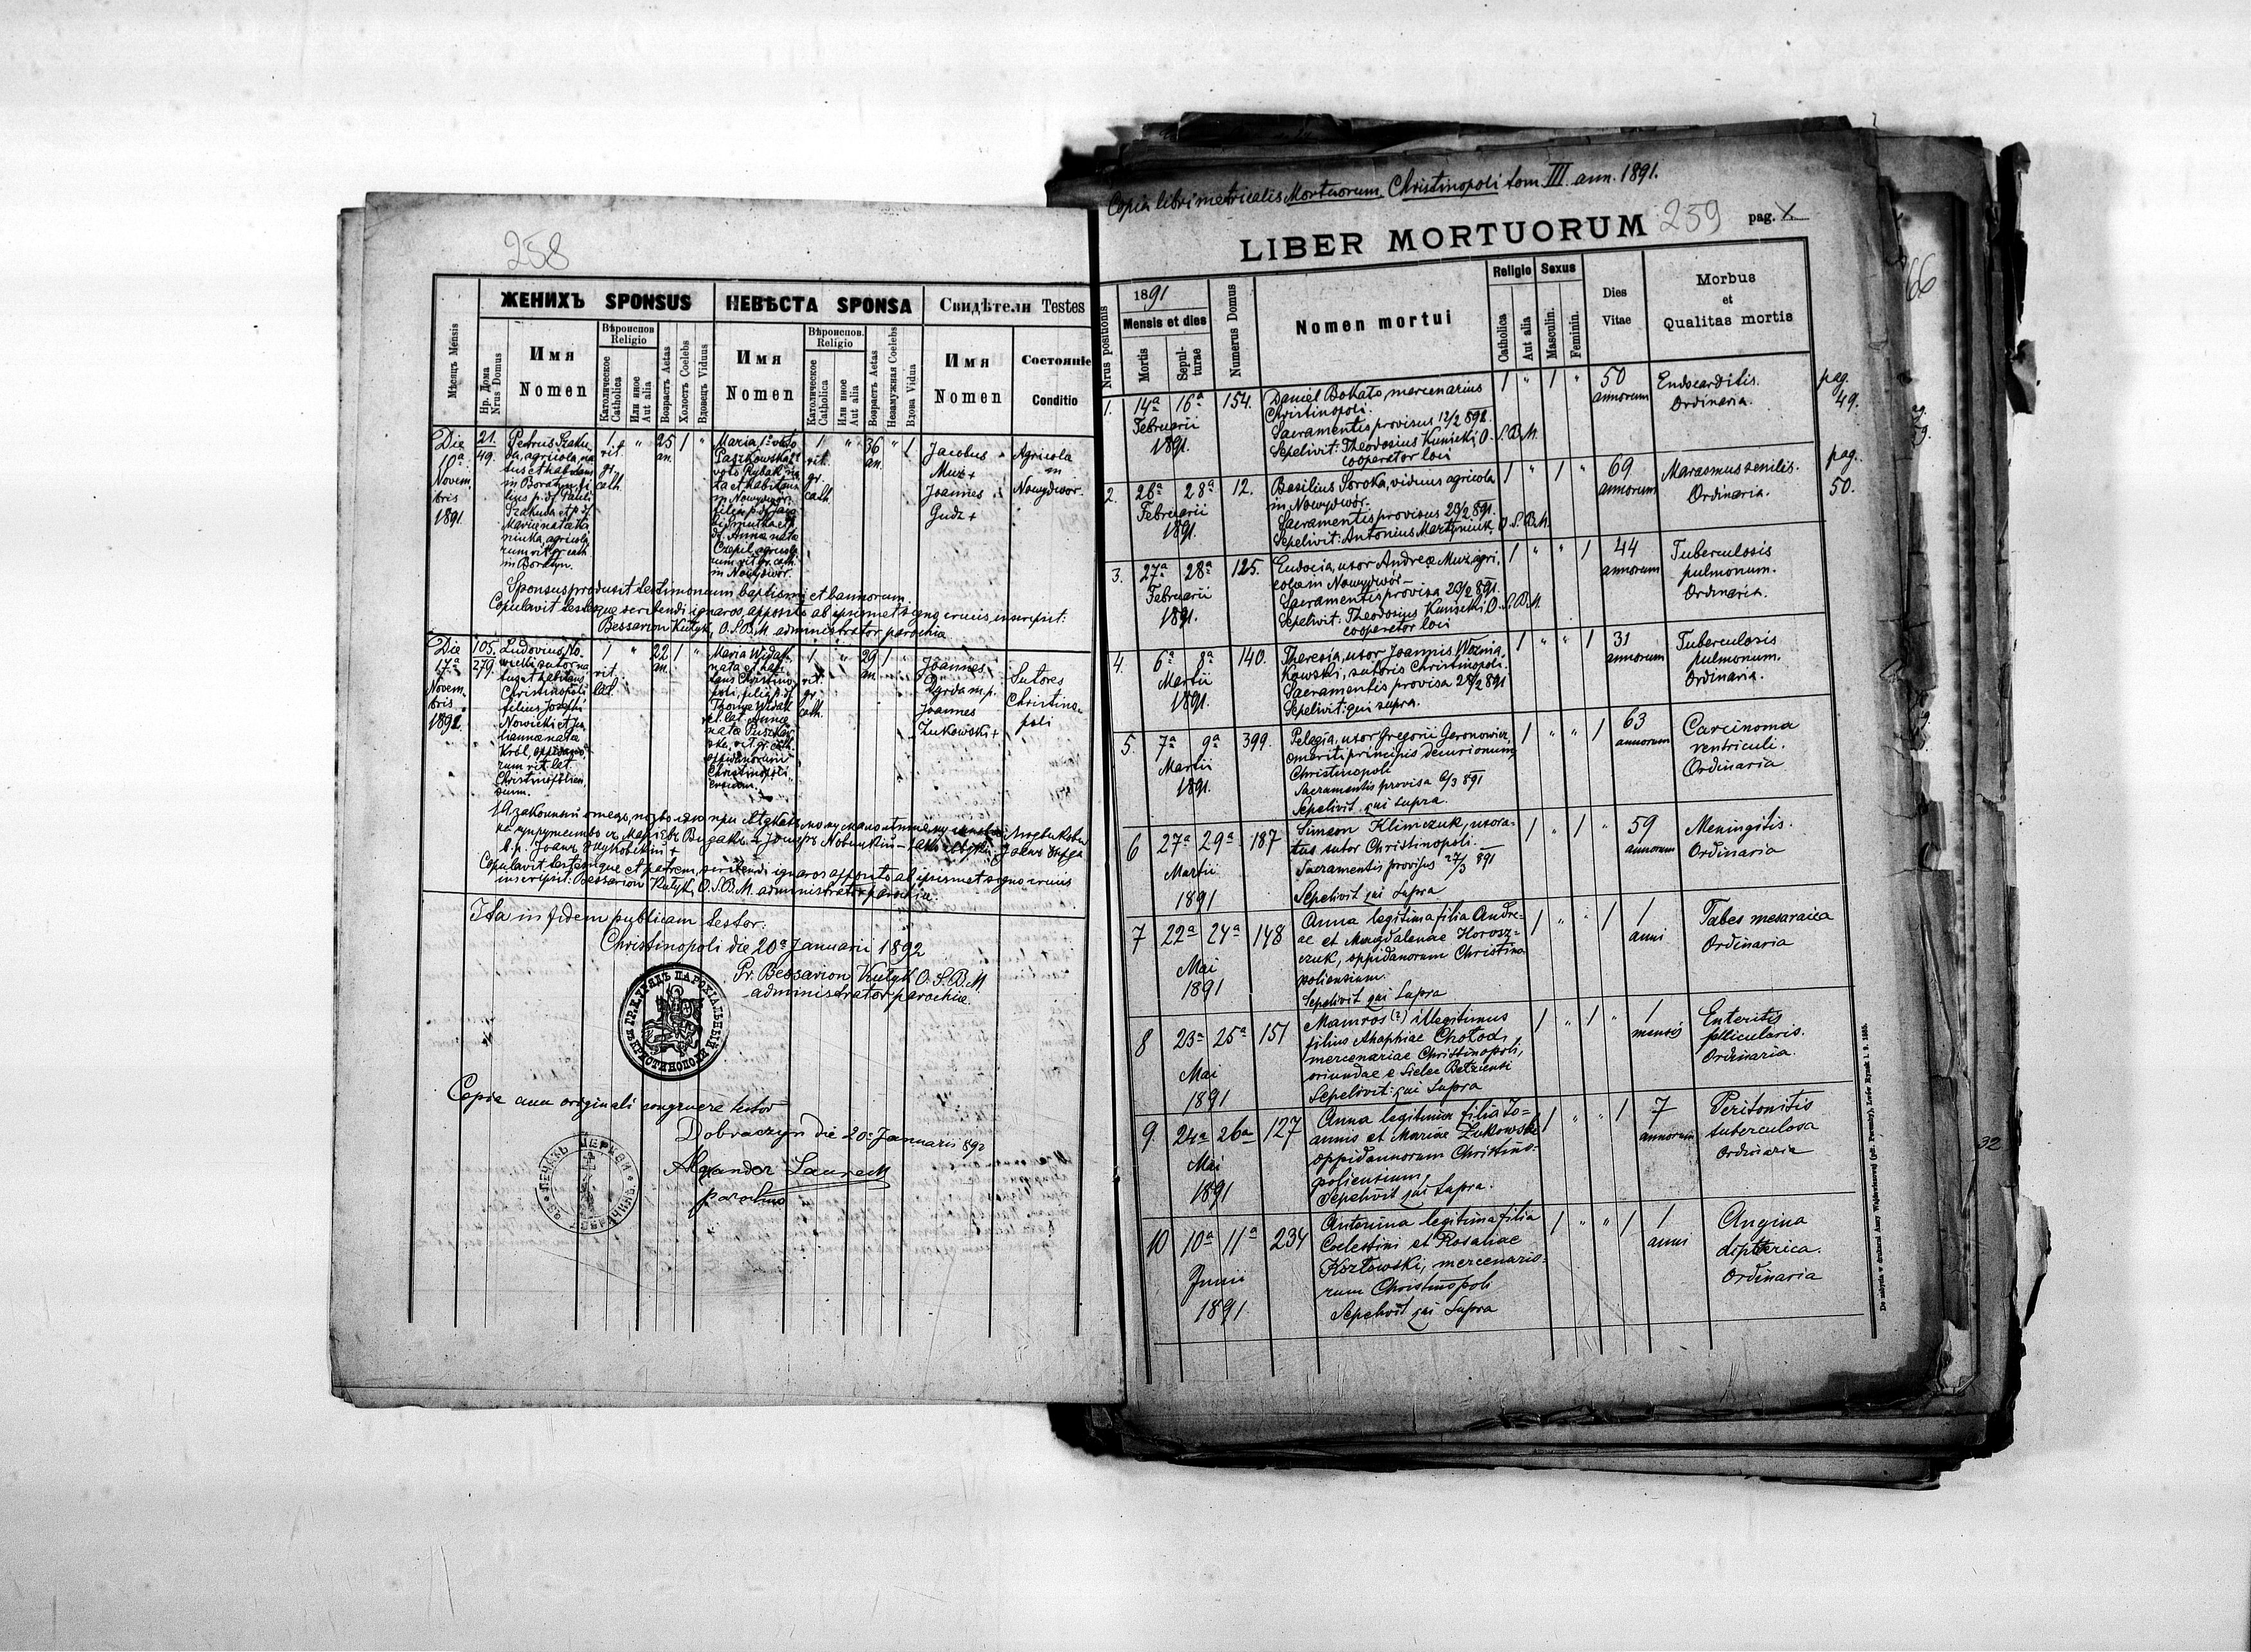 258
ЖЕНИХЪ SPONSUS
НЕВѢСТА SPONSA
Свидѣтели Testes
Мѣсяцъ Mensis
Нр. Дома
Nrus Domus
Имя
Nomen
Вѣроиспов.
Religio
Католическое
Catholica
Или иное
Aut alia
Возрастъ Aetas
Холостъ Coelebs
Вдовецъ Viduus
Имя
Nomen
Вѣроиспов.
Religio
Католическое
Catholica
Или иное
Aut alia
Возрастъ Aetas
Незамужная Coelebs
Вдова Vidua
Имя
Nomen
Состояніе
Conditio
Die
10ª
Novem
bris
1891.
21.
49.
Petrus Szaku
da, agricola, na
tus et habitans
in Boratyn, fi
lius p. df. Pauli
Szakuda et p. df.
Mariae natae
agricola
rum rit. gr. cath.
in Boratyn.
1
rit.
gr.
cath.
"
25
an.
1
"
Maria 1º voto
Paszkowska 2º
voto Rybak na
ta et habitans
in Nowydwór,
filia p. df. Jaco
bi et p.
df. Annae nata
Czepil, agricola
rum rit. gr. cath.
in Nowydwór.
1
rit.
gr.
cath.
"
36
an.
"
1
Jacobus
Muz +
Joannes
Gudz +
Agricola
in
Nowydwor.
Sponsus produxit testimonium baptismi et bannorum.
Copulavit testesque scribendi ignaros, apposito ab ipsismet signo crucis, inscripsit:
Bessarion Kułyk, O.S.B.M. administrator parochiae
Die
17ª
Novem
bris
1892.
105.
279.
Ludovicus No-
wicki, sutor na
tus et habitans
Christinopoli
filius Josephi
Nowicki et Ju
liannae nata
Król, oppidano
rum rit. lat.
Christinopolien
sium.
1
rit.
lat.
"
22
an.
1
"
Maria Widak
nata et habi
tans Christino
poli, filia p. df.
Thomae Widak
rit. lat. Annae
nata
rit. gr. cath.
oppidanorum
Christinopoli
ensium.
1
rit.
gr.
cath.
"
29
an.
1
Joannes
Dyrda m. p.
Joannes
Żukowski +
Sutores
Christino-
poli
Copulavit testesque et patrem, scribendi ignaros apposito ab ipsismet signo crucis
inscripsit: Bessarion Kułyk, O.S.B.M. administrator parochiae.
Ita in fidem publicam testor.
Christinopoli die 20ª Januarii 1892
Gr. Bessarion Kułyk O.S.B.M.
administrator parochiae.
Copia cum originali congruere testor
Dobraczyn die 20. Januaris 892
Alexander Laureck
parochus
Copia libri metricalis Mortuorum Christinopoli tom. III. ann. 1891.
LIBER MORTUORUM
259
pag. X.
Nrus positionis
1891
Mensis et dies
Mortis
Sepul-
turae
Numerus Domus
Nomen mortui
Religio
Catholica
Aut alia
Sexus
Masculin.
Feminin.
Dies
Vitae
Morbus
et
Qualitas mortis
1.
14ª
16ª
Februarii
1891.
154.
Daniel Bohato mercenarius
Christinopoli.
Sacramentis provisus 12/2 892.
Sepelivit: Theodosius Kunicki, O.S.B.M.
cooperator loci
1
"
1
"
50
annorum
Endocarditis.
Ordinaria.
pag.
49.
2.
26ª
28ª
Februarii
1891.
12.
Basilius Soroka, viduus agricola
in Nowydwór.
Sacramentis provisus 23/2 891.
Sepelivit: Antonius Martyniuk, O.S.B.M.
1
"
1
"
69
annorum
Marasmus senilis.
Ordinaria.
pag.
50.
3.
27ª
28ª
Februarii
1891.
125.
Eudocia, uxor Andreae Muz, agri,
colae in Nowydwór—
Sacramentis provisa 23/2 891.
Sepelivit: Theodosius Kunicki, O.S.B.M.
cooperator loci
1
"
"
1
44
annorum
Tuberculosis
pulmonum.
Ordinaria.
4.
6ª
8ª
Martii
1891.
140.
Theresia, uxor Joannis Woźnia,
kowski, sutoris Christinopoli.
Sacramentis provisa 28/2 891
Sepelivit: qui supra.
1
"
"
1
31
annorum
Tuberculosis
pulmonum.
Ordinaria.
5.
7ª
9ª
Martii
1891.
399.
Pelagia, uxor Gregorii Geronowicz,
emeriti principis decurionum,
Christinopoli
Sacramentis provisa 6/3 891
Sepelivit qui supra.
1
"
"
1
63
annorum
Carcinoma
ventriculi.
Ordinaria
6
27ª
29ª
Martii
1891
187
Simeon Klimczuk, uxora-
tus sutor Christinopoli.
Sacramentis provisus 27/3 891
Sepelivit qui supra
1
"
1
"
59
annorum
Meningitis.
Ordinaria
7
22ª
24ª
Mai
1891
148
Anna legitima filia Andre-
ae et Magdalenae Korosz=
czuk, oppidanorum Christino
poliensium.
Sepelivit qui supra
1
"
"
1
1
anni
Tabes mesaraica
Ordinaria
8
23ª
25ª
Mai
1891
151
Mamros (?) illegitimus
filius Ahaphiae Chołod,
mercenariae Christinopoli,
oriundae e Sielec Bełziensi
Sepelivit: qui supra
1
"
1
"
1
mensis
Enteritis
follicularis.
Ordinaria.
9.
24ª
26ª
Mai
1891
127
Anna legitima filia Jo=
annis et Mariae Żukowskie
oppidannorum Christino-
poliensium,
Sepelivit qui supra.
1
"
"
1
7
annorum
Peritonitis
tuberculosa
Ordinaria
10
10ª
11ª
Junii
1891.
234
Antonina legitima filia
Coelestini et Rosaliae
Kozłowski, mercenario-
rum Christinopoli
Sepelivit qui supra
1
"
"
1
1
anni
Angina
dipterica.
Ordinaria
66
32